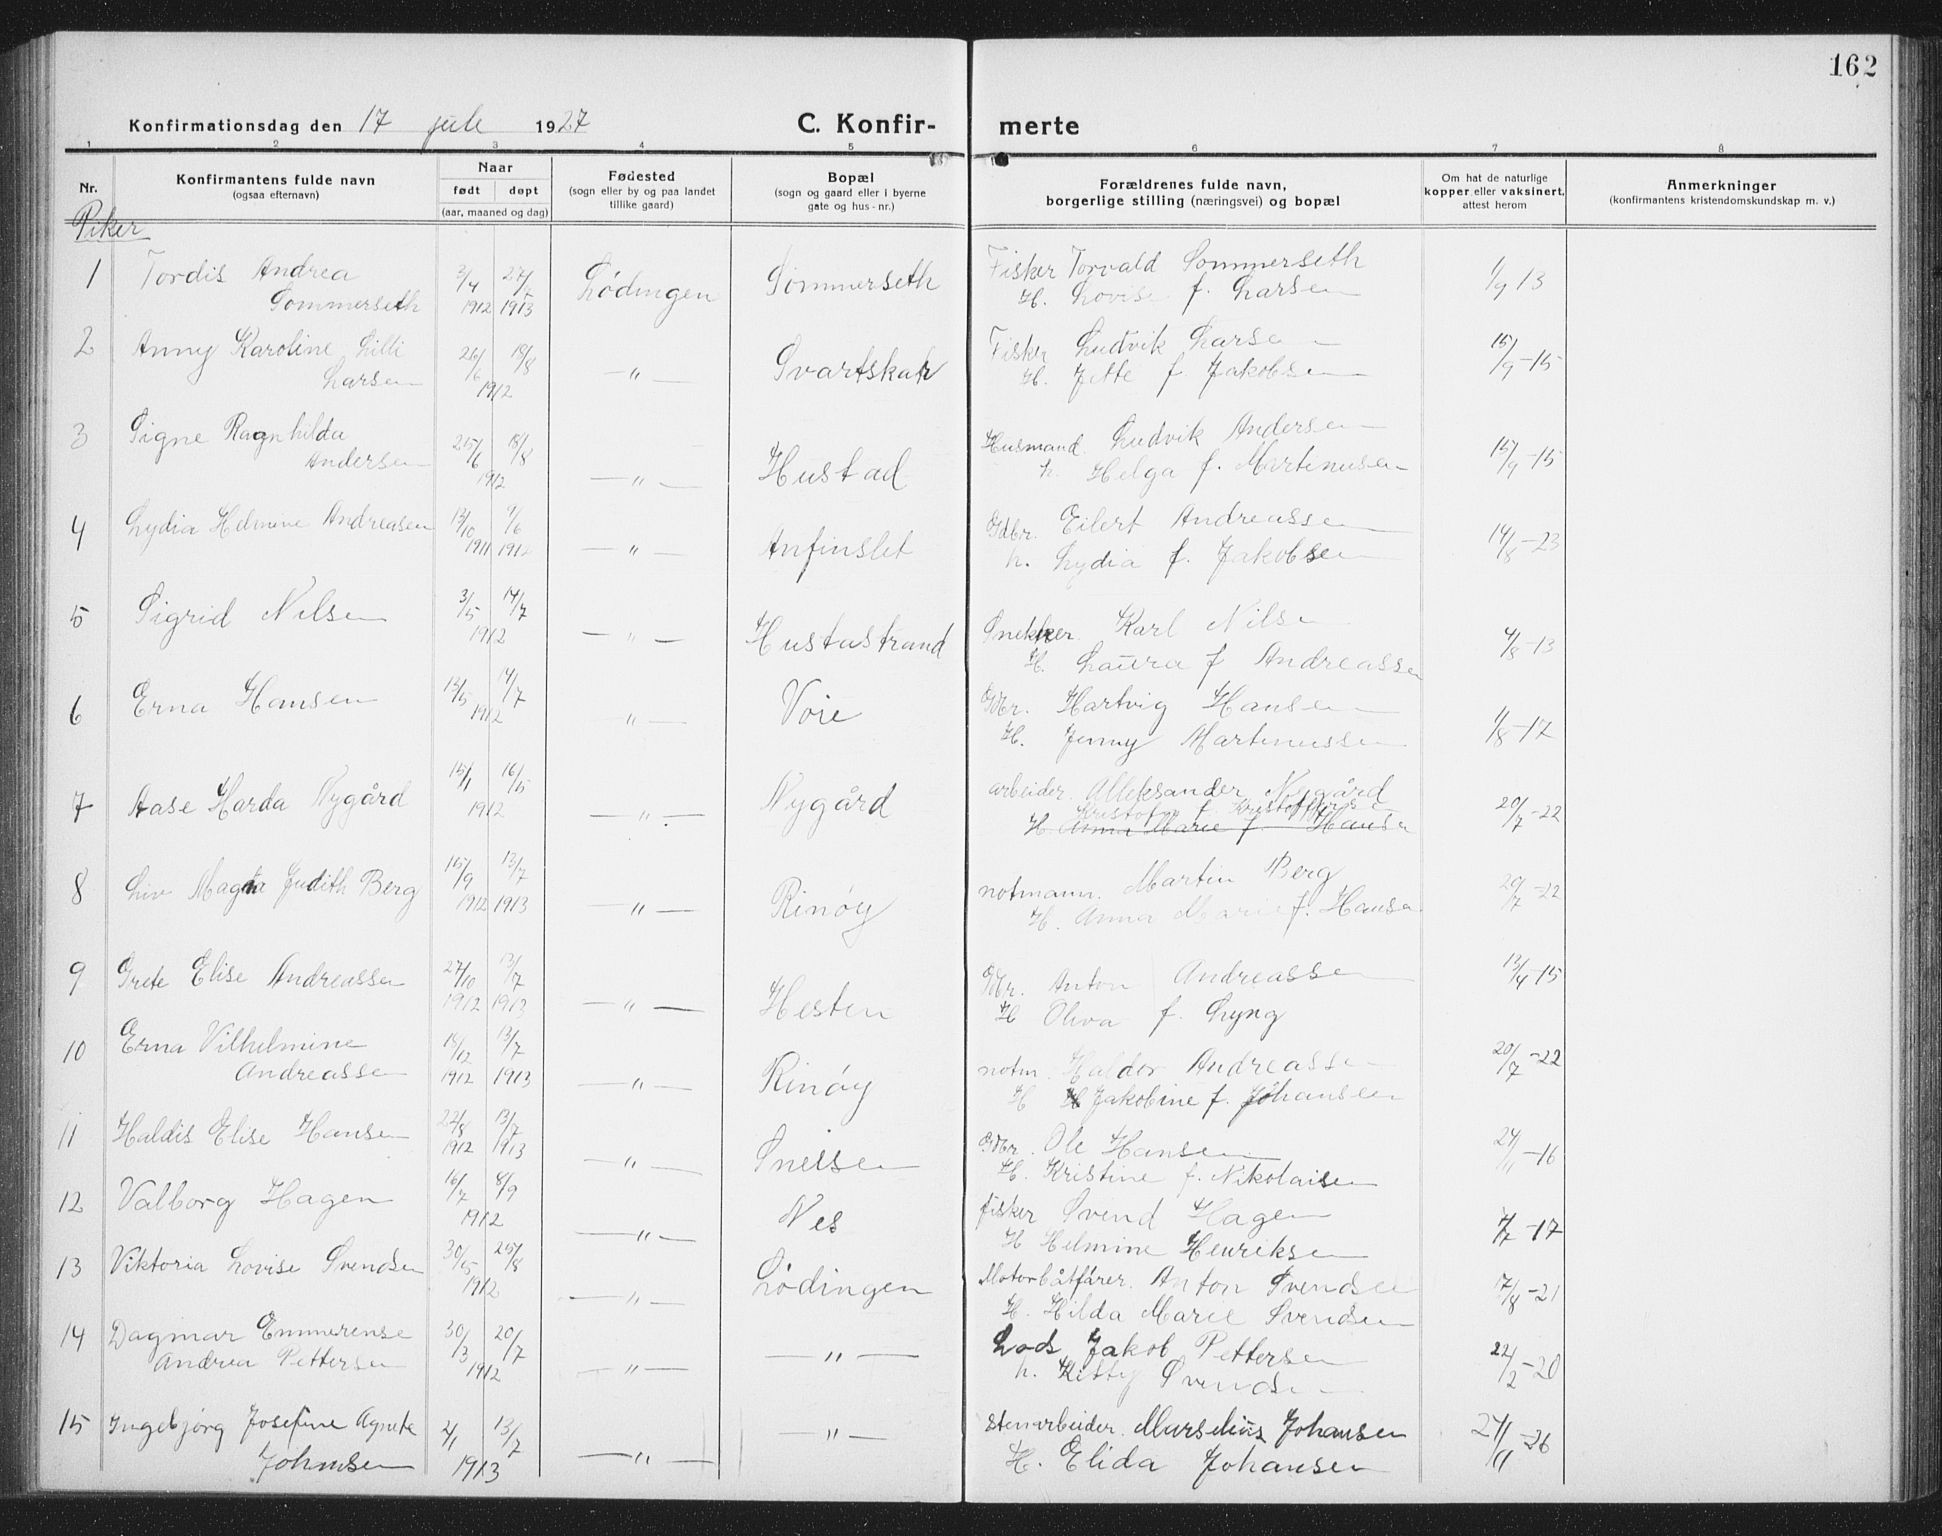 162
Konfirmationsdag den 17 juli 1927
C. Konfir-
merte
1 2 3 4 5 6 7 8
Nr.
Konfirmantens fulde navn
(ogsaa efternavn)
Naar
født døpt
(aar, maaned og dag)
Fødested
(sogn eller by og paa landet
tillike gaard)
Bopæl
(sogn og gaard eller i byerne
gate og hus-nr.)
Forældrenes fulde navn,
borgerlige stilling (næringsvei) og bopæl
Om hat de naturlige
kopper eller vaksinert,
attest herom
Anmerkninger
(konfirmantens kristendomskundskap m. v.)
Piker
1 Tordis Andrea 3/4 27/4 Lødingen Sommerseth Fisker Torvald Sommerseth 1/9 13
Sommerseth 1912 1913 H. Lovise f. Larsen
2 Anny Karoline Lilli 26/6 18/8 —"— Fisker Ludvik Larsen 15/9-15
Larsen 1912 H. Jette f. Jakobsen
3 Signe Ragnhilda 25/6 18/8 —"— Hustad Husmand Ludvik Andersen 15/9-15
Andersen 1912 h. Helga f. Martinusen
4 Lydia Helmine Andreasen 13/10 9/6 —"— Anfinslet Gdbr. Eilert Andreassen 14/8-23
1911 1912 h. Lydia f. Jakobsen
5 Sigrid Nilsen 3/5 14/7 —"— Hustastrand Snekker Karl Nilsen 4/8-13
1912 H. Laura f Andreassen
6 Erna Hansen 13/5 14/7 —"— Voie Gdbr. Hartvig Hansen 1/8-17
1912 H. Jenny Martinussen
7 Aase Harda Nygård 15/1 16/5 —"— Nygård arbeider. Alleksander Nygård 20/7-22
1912 H. Anna Marie f. Hansen
8 Liv Magna Judith Berg 15/9 13/7 —"— Rinøy notmann. Martin Berg 20/7-22
1912 1913 H. Anna Marie f. Hansen
9 Grete Elise Andreassen 27/10 13/7 —"— Hesten Gbr. Anton Andreassen 13/4-15
1912 1913 H Oliva f. Lyng
10 Erna Vilhelmine 18/12 13/7 —"— Rinøy notm. Haldor Andreassen 20/7-22
Andreassen 1912 1913 H Jakobine f. Johansen
11 Haldis Elise Hansen 22/8 13/7 —"— Sneisen Gdbr. Ole Hansen 24/11-16
1912 1913 H. Kristine f. Nikolaisen
12 Valborg Hagen 16/7 8/9 —"— Nes fisker Svend Hagen 7/7-17
1912 H Helmine Henriksen
13 Viktoria Lovise Svendsen 30/5 25/8 —"— Lødingen Motorbåtfører. Anton Svendsen 17/8-21
1912 H. Hilda Marie Svendsen
14 Dagmar Emmerense 30/3 20/7 —"— —"— Lods Jakob Pettersen 22/2-20
Andrea Pettersen 1912 h. Kitty Svendsen
15 Ingebjørg Josefine Agnete 2/1 13/7 —"— —"— Stenarbeider. Marselius Johansen 24/11-26
Johansen 1913 H. Elida Johansen